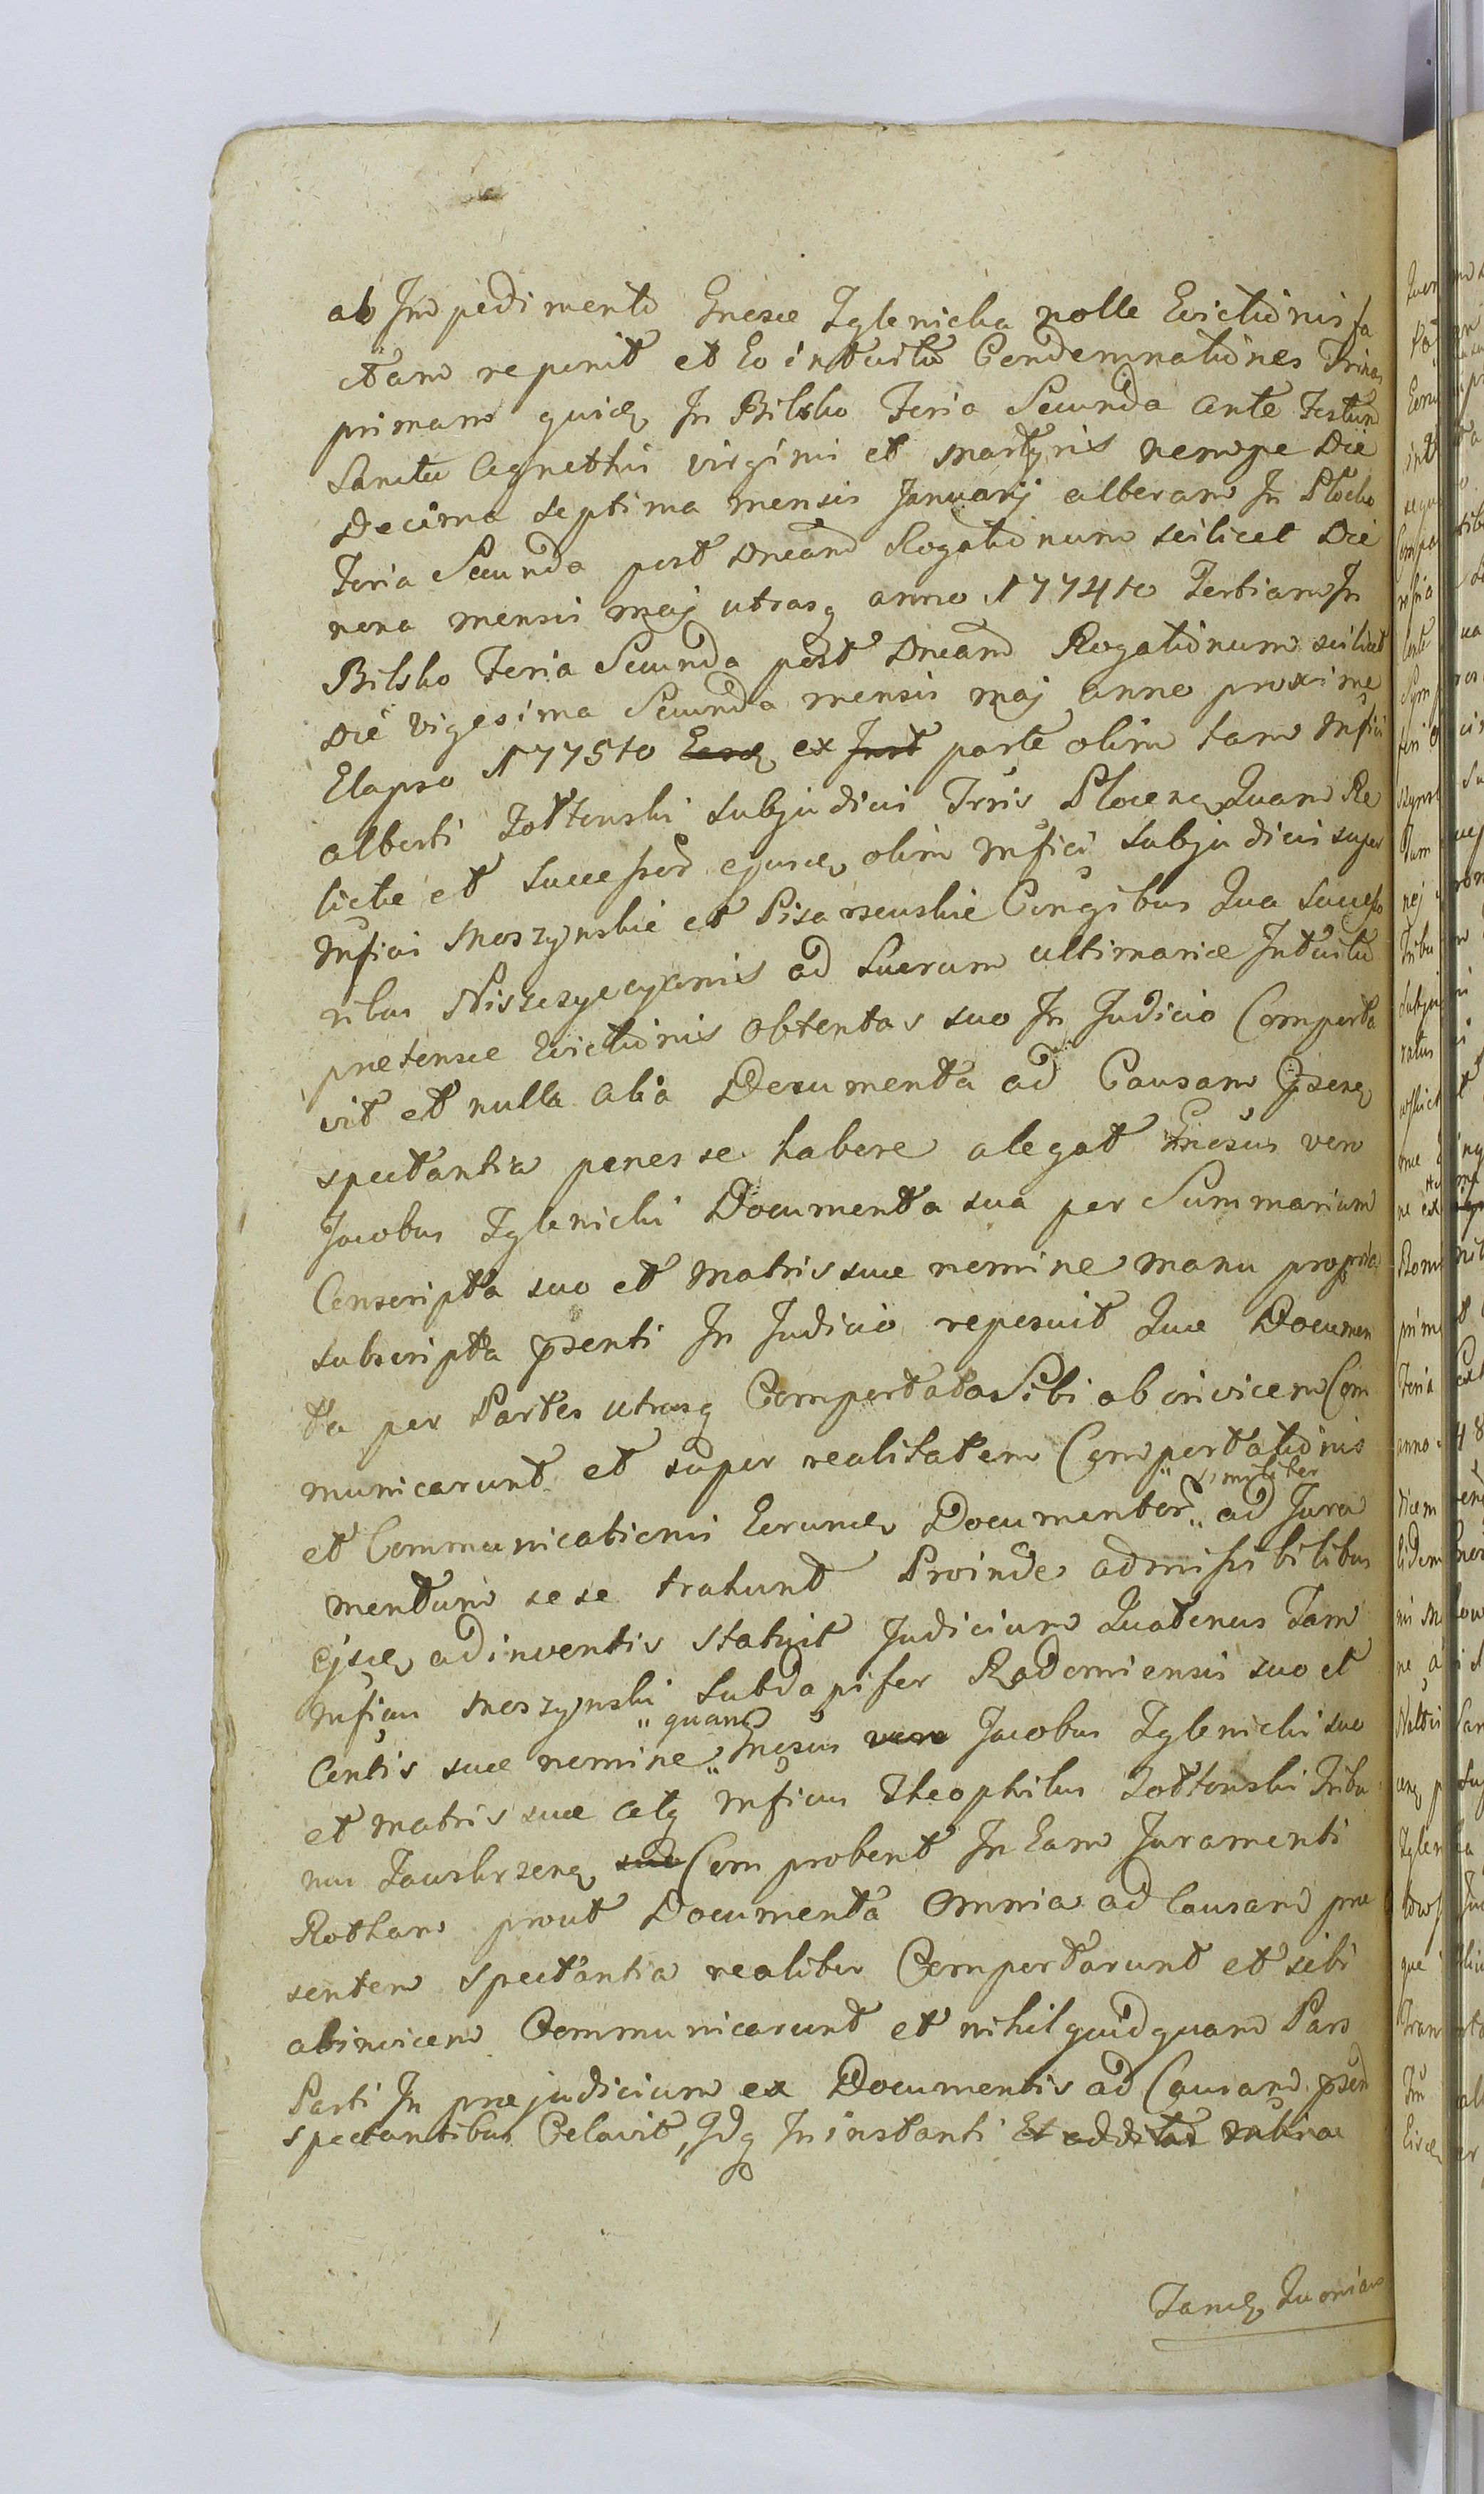 ab Impedimento Gnosæ Zglenicka nolle Evictionis fa
ctam reponit et Eo intuitu Condemnationes Trinas
primam quidē In Bilsko Feria Secunda ante Festum
Sanctæ Agnethis virginis et Martyris nempe Die
Decima septima mensis Januarij alteram In Plocko
Feria Secunda post Dnicam Rogationum scilicet Die
nona mensis Maj utrasq anno 1774to Tertiam In
Bilsko Feria Secunda post Dnicam Rogationum scilicet
Die Vigesima Secunda mensis Maj anno proxime
Elapso 1775to ex parte olim tam Mfici
Alberti Zołtowski Subjudicis Trris Plocenē Quam Re
lictæ et Successorē ejusdē olim Mfici Subjudicis super
Mficis Moszynskie et Pisarzewskie Conjgibus Qua Successo
ribus Niszczyczyanis ad Lucrum ultimariæ Intuitu
prætensæ Evictionis obtentas suo In Judicio Comporta
vit et nulla alia Documenta ad Causam Psenē
spectantia penes se habere alegat Gnosus vero
Jacobus Zglenicki Documenta sua per Summarium
Conscripta suo et Matris suæ nomine manu propria
subscripta psenti In Judicio reposuit Quæ Documen
ta per Partes utrasq Comportata Sibi ab invicem Com
municarunt et super realitatem Comportationis
et Communicationis Eorumdē Documentor " similiter " ad Jura
mentum sese trahunt Proinde admissibilibus
Ejsdē adinventis Statuit Judicium Quatenus Tam
Mficus Moszynski Subdapifer Radomiensis suo et
Contis suæ nomine " quam " Gnosus vero Jacobus Zglenicki suo
et Matris suæ atq Mficus Theophilus Zołtowski Tribu
nus Zawskrzenē suo Comprobent In Eam Juramenti
Rotham prout Documenta omnia ad Causam præ
sentem spectantia realiter Comportarunt et sibi
abinvicem Communicarunt et nihil quidquam Pars
Parti In præjudicium ex Documentis ad Causam psen
spectantibus Celavit, Idq In instanti Et addita
Tandē Quoniam